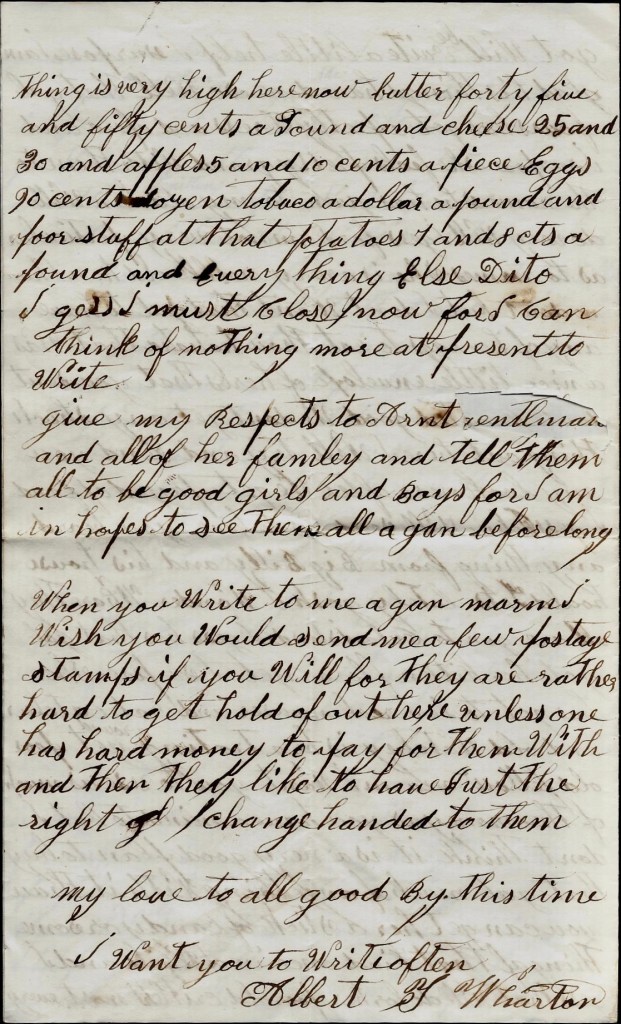 thing is very high here now butter forty five
and fifty cents a Pound and cheese 25 and
30 and apples 5 and 10 cents a piece Eggs
90 cents dozen tobaco a dollar a pound and
poor stuff at that potatoes 7 and 8 cts a
pound and Every thing Else Dito
I gess I must Close now for I Can
think of nothing more at present to
Write
give my Respects to Arnt Gentlman
and all of her famley and tell Them
all to be good girls and Boys for I am
in hopes to see Them all a gan before long
When you Write to me a gan marm I
Wish you Would send me a few postage
stamps if you Will for They are rather
hard to get hold of out here unless one
has hard money to pay for Them With
and Then They like to have Just The
right change handed to Them
my love to all good By this time
I Want you to Write often
Albert Wharton